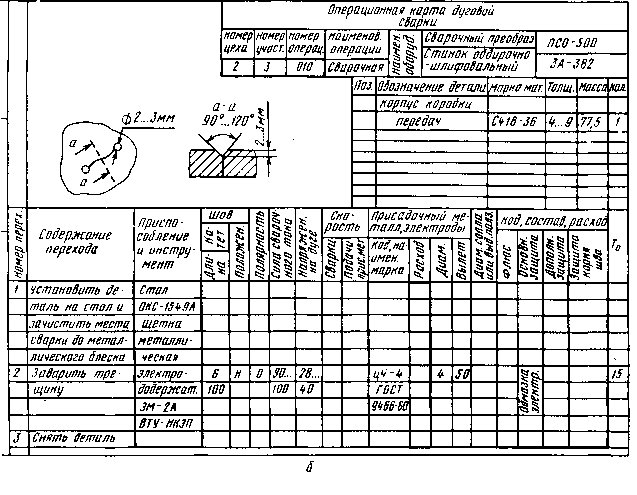 Операционная карта дуговой сварки
номер цеха номер участ. номер операц. наименов. операции наимен. оборуд. Сварочный преобраз ПСО-500
2 3 010 Сварочная Станок обдирочно-шлифовальный 3А-382
Поз. Обозначение детали марка мат. Толщ. Масса кол.
корпус коробки
передач СЧ18-36 4...9 77,5 1
ф2...3мм
а-а
90°...120°
2...3мм
а
а
номер перех. Содержание перехода Приспособление и инструмент шов Длина катет Положен. Полярность Сила сварочного тока Напряжен. на дуге Скорость Сварки Подачи прис. мет. Присадочный металл, электроды код, наимен. марка Расход Диам. Вылет Диам. сопла код, состав, расход Флюс Основн. защита Дополн. защита Защита корня шва Т₀
1 Установить де- Стол
таль на стол и ОКС-1549А
зачистить места Щетка
сварки до метал- металли-
лического блеска ческая
2 Заварить тре- электро- 6 Н О 90... 28... ЦЧ-4 4 50 Обмазка электр. 15
щину додержат. 100 100 40 ГОСТ
ЭМ-2А 9466-60
ВТУ-НКЭП
3 Снять деталь
б